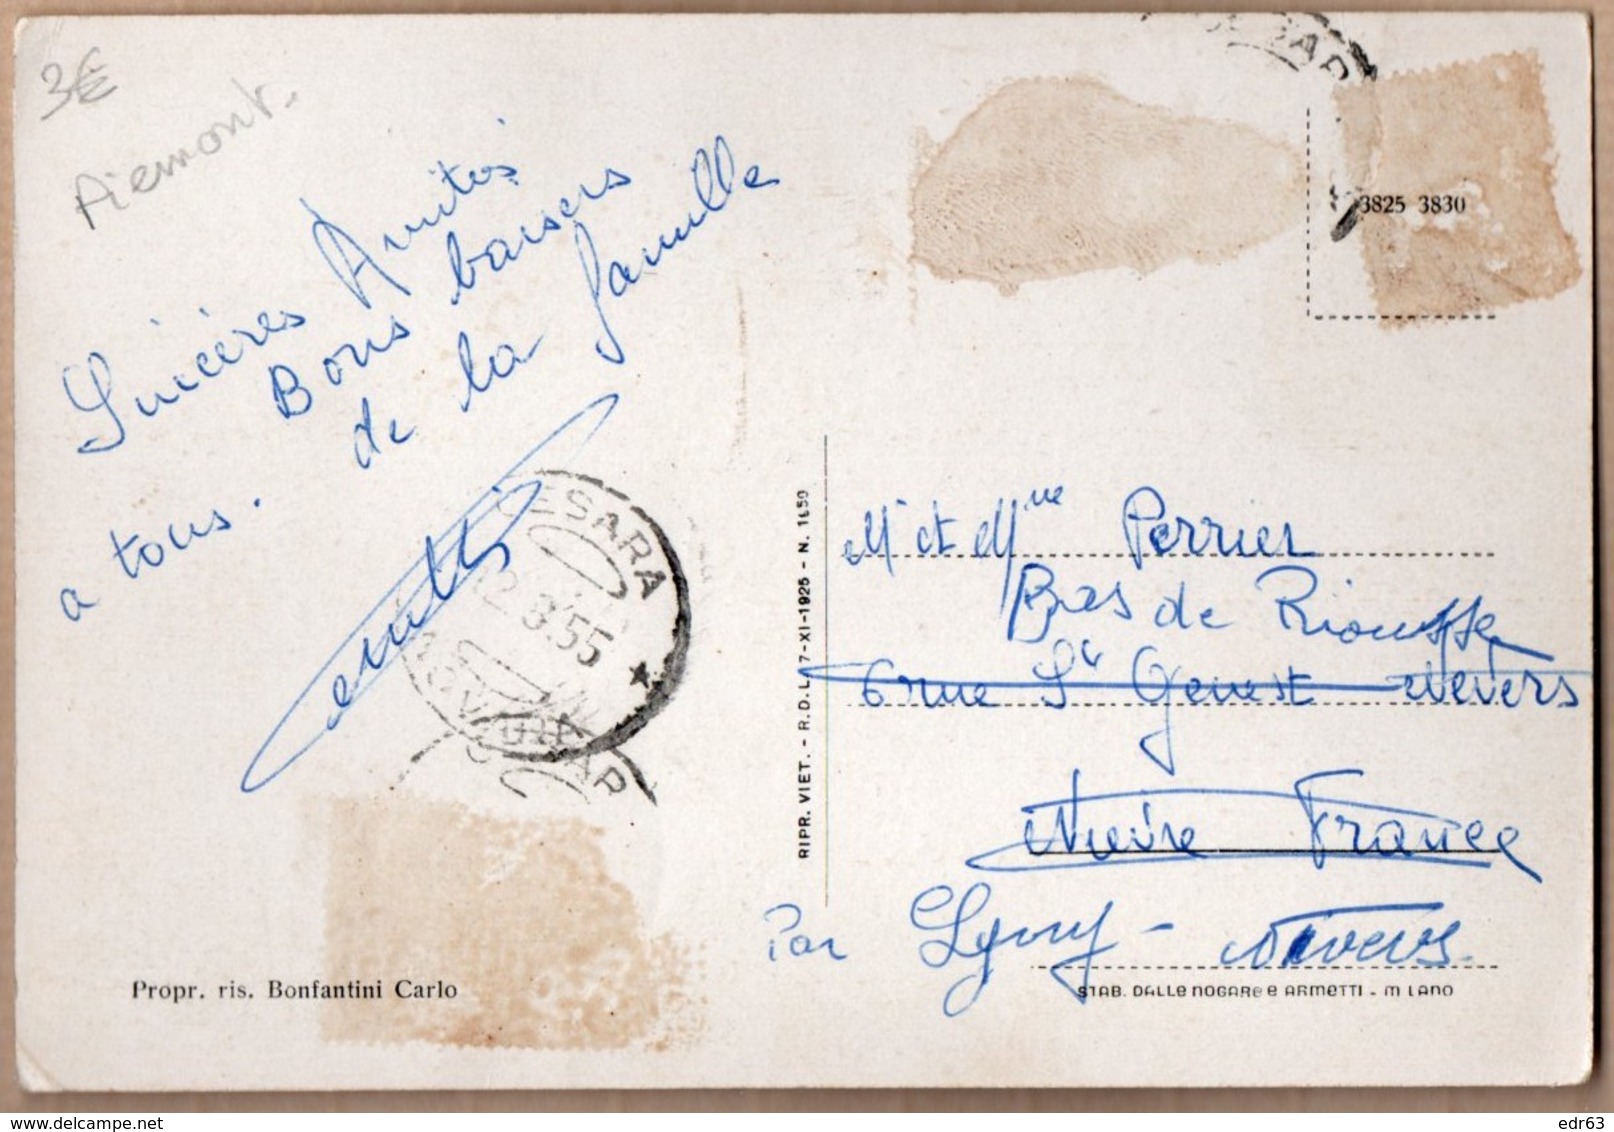 3€
Piemont.
Sincères Amitiés
Bons baisers
de la famille
a tous.
CESARA
12.8.55
NOVARA
Propr. ris. Bonfantini Carlo
RIPR. VIET. - R.D.L. 7-XI-1925 - N. 1650
3825 3830
Mr et Mme Perrier
Bas de Riousse
6 rue St Genest Nevers
Nièvre France
Par Nevers.
STAB. DALLE NOGARE e ARMETTI - MILANO
edr63